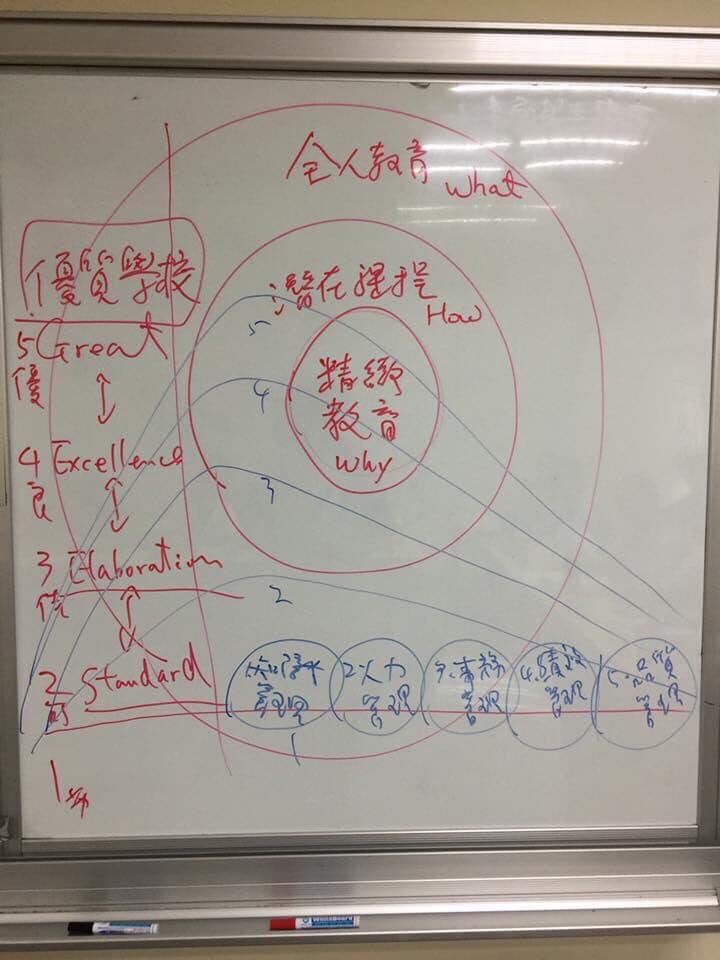 全人教育
what
優質學校
潛在課程
How
5 Great
優
5
精緻
教育
why
4
4 Excellence
良
3
3 Elaboration
2
2 Standard
知識
管理
2人力
管理
管理
4.績效
管理
5.品質
管理
1
1